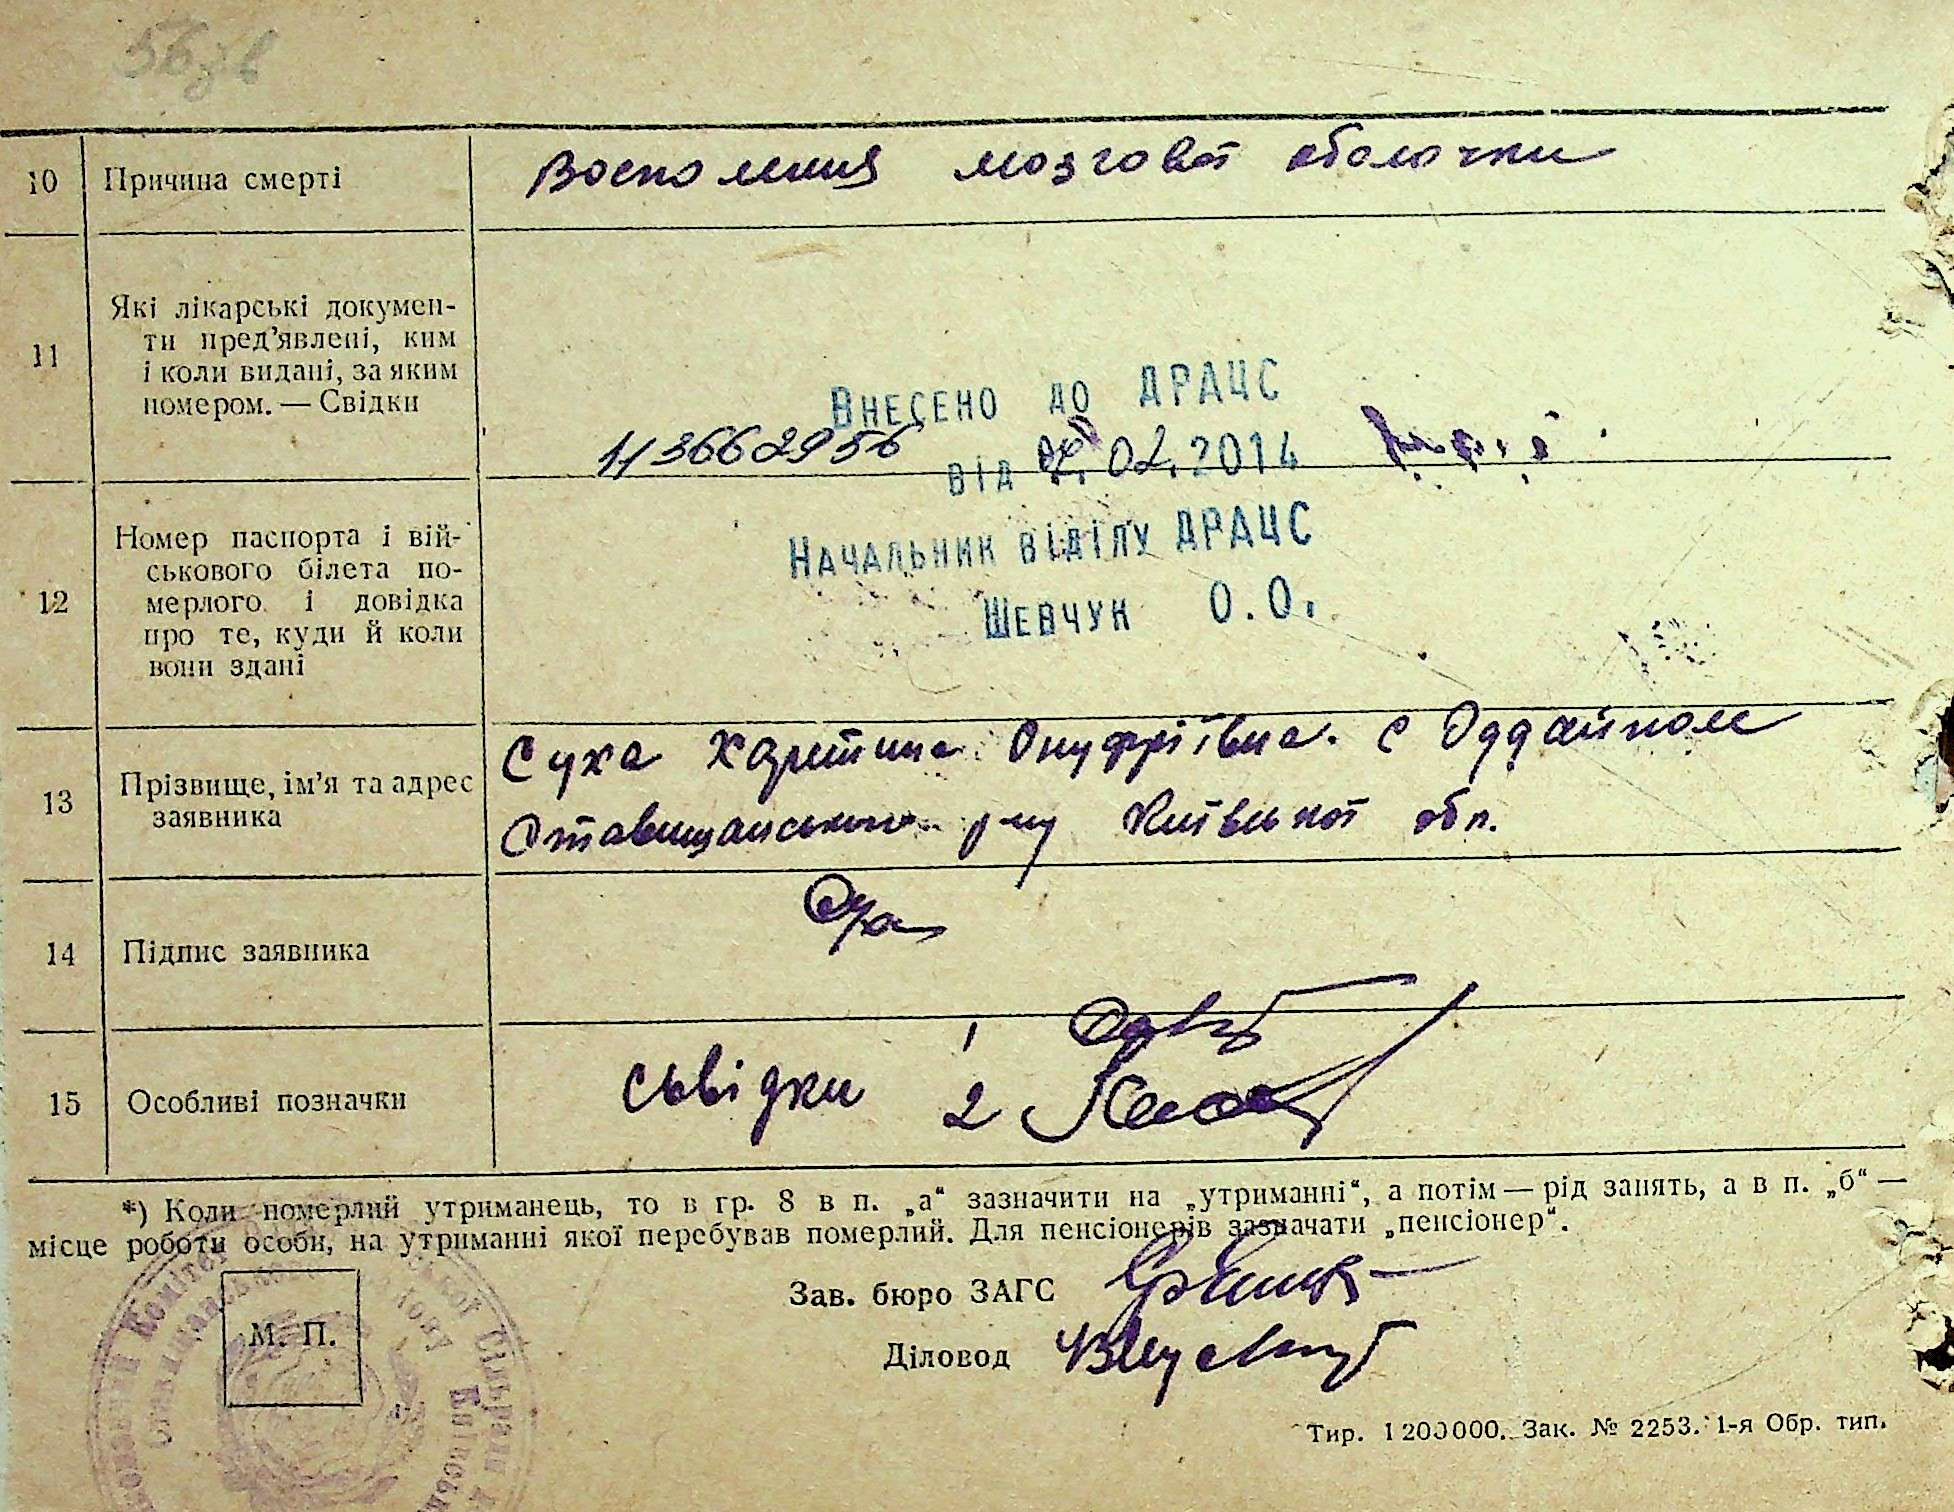 56 зв
10 Причина смерті Восполения мозгової оболочки
11 Які лікарські докумен-
ти пред'явлені, ким
і коли видані, за яким
номером. — Свідки
Внесено до ДРАЦС
113662956
від 02.2014
Начальник відділу ДРАЦС
Шевчук О.О.
12 Номер паспорта і вій-
ськового білета по-
мерлого і довідка
про те, куди й коли
вони здані
13 Прізвище, ім'я та адрес
заявника
Суха Харитина Онуфріївна. с Оддайполе
Ставищанського р-ну Київської обл.
14 Підпис заявника
15 Особливі позначки
сьвідки 1
2
*) Коли померлий утриманець, то в гр. 8 в п. „а“ зазначити на „утриманні“, а потім — рід занять, а в п. „б“ —
місце роботи особи, на утриманні якої перебував померлий. Для пенсіонерів зазначати „пенсіонер“.
Зав. бюро ЗАГС
М. П.
Діловод
Тир. 1200000. Зак. № 2253. 1-я Обр. тип.